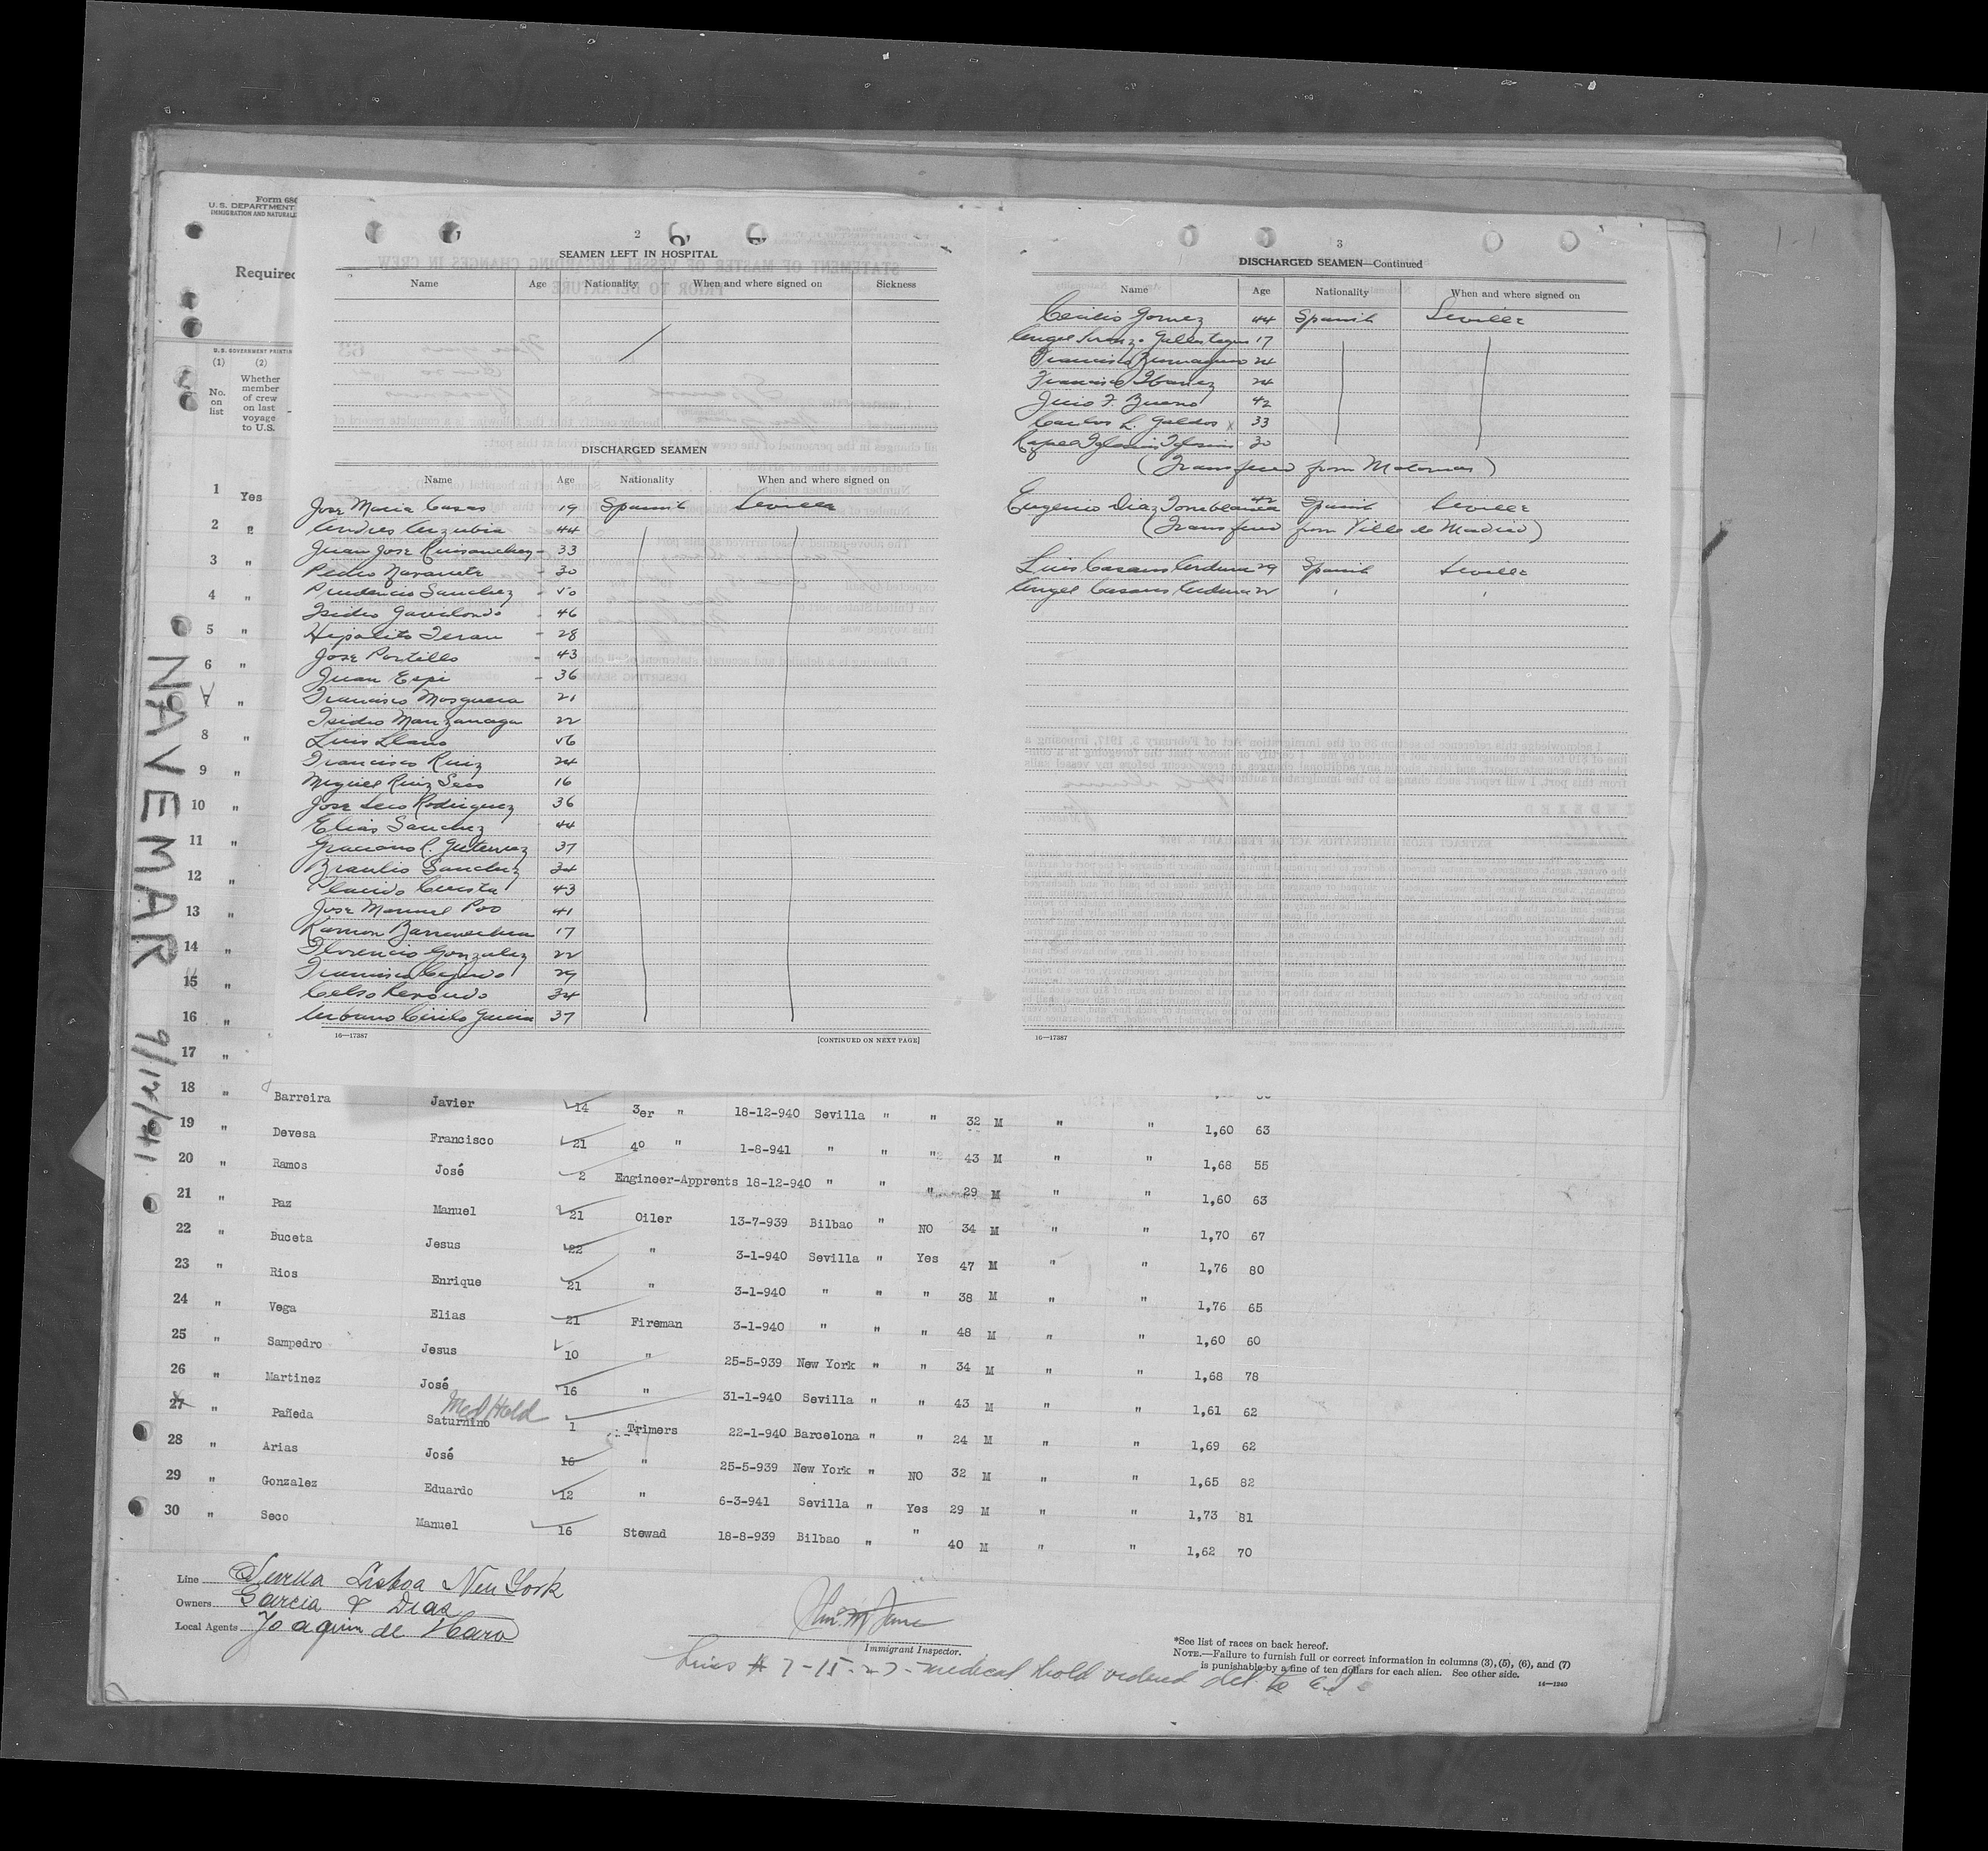 Form 68
U. S. DEPARTMENT
IMMIGRATION AND NATURALI
Required
U. S. GOVERNMENT PRINTIN
(1) (2)
No. on list
Whether member of crew on last voyage to U.S.
1 Yes
2 "
3 "
4 "
5 "
6 "
"
8 "
9 "
10 "
11 "
12 "
13 "
14 "
15 "
16 "
17 "
NAVEMAR 9/12/41
2
SEAMEN LEFT IN HOSPITAL
Name Age Nationality When and where signed on Sickness
DISCHARGED SEAMEN
Name Age Nationality When and where signed on
Jose Maria Casas 19 Spanish Seville
Andres Anzubia 44
Juan Jose Ruisanchez - 33
Pedro Navarrete - 30
Prudencio Sanchez - 50
Isidro Gavilondo - 46
Hipolito Teran - 28
Jose Portillo - 43
Juan Espi - 36
Francisco Mosquera 21
Isidro Manzanaga 22
Luis Llano 56
Francisco Ruiz 24
Miguel Ruiz Seco 16
Jose Seco Rodriguez 36
Elias Sanchez 44
Graciano C. Gutierrez 37
Braulio Sanchez 34
Placido Cuesta 43
Jose Manuel Poo 41
Ramon Barrenechea 17
Florencio Gonzalez 22
Francisco 29
Celso Redondo 34
Urbano Cirilo Garcia 37
16—17387 [CONTINUED ON NEXT PAGE]
3
DISCHARGED SEAMEN—Continued
Name Age Nationality When and where signed on
Cecilio Gomez 44 Spanish Seville
Angel 17
Francisco 24
Francisco Ibanez 24
Julio F. Bueno 42
Carlos L. Galdos x 33
Rafael Iglesias Iglesias 30
(Transferred from Motomar)
Eugenio Diaz Torreblanca 42 Spanish Seville
(Transferred from Villa de Madrid)
Luis Casans Ardura 29 Spanish Seville
Angel Casans Ardura 22 ' '
16—17387
18 " Barreira Javier 14 3er " 18-12-940 Sevilla " " 32 M " " 1,60 63
19 " Devesa Francisco 21 4º " 1-8-941 " " " 43 M " " 1,68 55
20 " Ramos José 2 Engineer-Apprents 18-12-940 " " " 29 M " " 1,60 63
21 " Paz Manuel 21 Oiler 13-7-939 Bilbao " NO 34 M " " 1,70 67
22 " Buceta Jesus 22 " 3-1-940 Sevilla " Yes 47 M " " 1,76 80
23 " Rios Enrique 21 " 3-1-940 " " " 38 M " " 1,76 65
24 " Vega Elias 21 Fireman 3-1-940 " " " 48 M " " 1,60 60
25 " Sampedro Jesus 10 " 25-5-939 New York " " 34 M " " 1,68 78
26 " Martinez José 16 " 31-1-940 Sevilla " " 43 M " " 1,61 62
Med Hold
27 " Pañeda Saturnino 1 Trimers 22-1-940 Barcelona " " 24 M " " 1,69 62
28 " Arias José 16 " 25-5-939 New York " NO 32 M " " 1,65 82
29 " Gonzalez Eduardo 12 " 6-3-941 Sevilla " Yes 29 M " " 1,73 81
30 " Seco Manuel 16 Stewad 18-8-939 Bilbao " " 40 M " " 1,62 70
Line Sevilla Lisboa New York
Owners Garcia & Diaz
Local Agents Joaquin de Haro
Immigrant Inspector.
Lines # 7-15-27 - medical hold ordered del. to E.I.
*See list of races on back hereof.
NOTE.—Failure to furnish full or correct information in columns (3), (5), (6), and (7)
is punishable by a fine of ten dollars for each alien. See other side.
14—1240